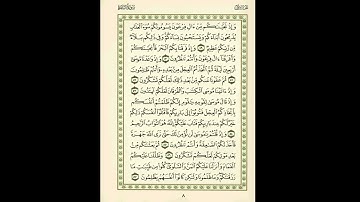 سُورَةُ البَقَرَةِ
وَإِذْ نَجَّيْنَٰكُم مِّنْ ءَالِ فِرْعَوْنَ يَسُومُونَكُمْ سُوٓءَ ٱلْعَذَابِ
يُذَبِّحُونَ أَبْنَآءَكُمْ وَيَسْتَحْيُونَ نِسَآءَكُمْ وَفِى ذَٰلِكُم بَلَآءٌ
مِّن رَّبِّكُمْ عَظِيمٌ ٤٩ وَإِذْ فَرَقْنَا بِكُمُ ٱلْبَحْرَ فَأَنجَيْنَٰكُمْ
وَأَغْرَقْنَآ ءَالَ فِرْعَوْنَ وَأَنتُمْ تَنظُرُونَ ٥٠ وَإِذْ وَٰعَدْنَا مُوسَىٰٓ
أَرْبَعِينَ لَيْلَةً ثُمَّ ٱتَّخَذْتُمُ ٱلْعِجْلَ مِنۢ بَعْدِهِۦ وَأَنتُمْ ظَٰلِمُونَ
٥١ ثُمَّ عَفَوْنَا عَنكُم مِّنۢ بَعْدِ ذَٰلِكَ لَعَلَّكُمْ تَشْكُرُونَ ٥٢
وَإِذْ ءَاتَيْنَا مُوسَى ٱلْكِتَٰبَ وَٱلْفُرْقَانَ لَعَلَّكُمْ تَهْتَدُونَ ٥٣
وَإِذْ قَالَ مُوسَىٰ لِقَوْمِهِۦ يَٰقَوْمِ إِنَّكُمْ ظَلَمْتُمْ أَنفُسَكُم
بِٱتِّخَاذِكُمُ ٱلْعِجْلَ فَتُوبُوٓا۟ إِلَىٰ بَارِئِكُمْ فَٱقْتُلُوٓا۟ أَنفُسَكُمْ ذَٰلِكُمْ
خَيْرٌ لَّكُمْ عِندَ بَارِئِكُمْ فَتَابَ عَلَيْكُمْ إِنَّهُۥ هُوَ ٱلتَّوَّابُ ٱلرَّحِيمُ
٥٤ وَإِذْ قُلْتُمْ يَٰمُوسَىٰ لَن نُّؤْمِنَ لَكَ حَتَّىٰ نَرَى ٱللَّهَ جَهْرَةً
فَأَخَذَتْكُمُ ٱلصَّٰعِقَةُ وَأَنتُمْ تَنظُرُونَ ٥٥ ثُمَّ بَعَثْنَٰكُم مِّنۢ
بَعْدِ مَوْتِكُمْ لَعَلَّكُمْ تَشْكُرُونَ ٥٦ وَظَلَّلْنَا عَلَيْكُمُ
ٱلْغَمَامَ وَأَنزَلْنَا عَلَيْكُمُ ٱلْمَنَّ وَٱلسَّلْوَىٰ كُلُوا۟ مِن طَيِّبَٰتِ مَا
رَزَقْنَٰكُمْ وَمَا ظَلَمُونَا وَلَٰكِن كَانُوٓا۟ أَنفُسَهُمْ يَظْلِمُونَ ٥٧
٨